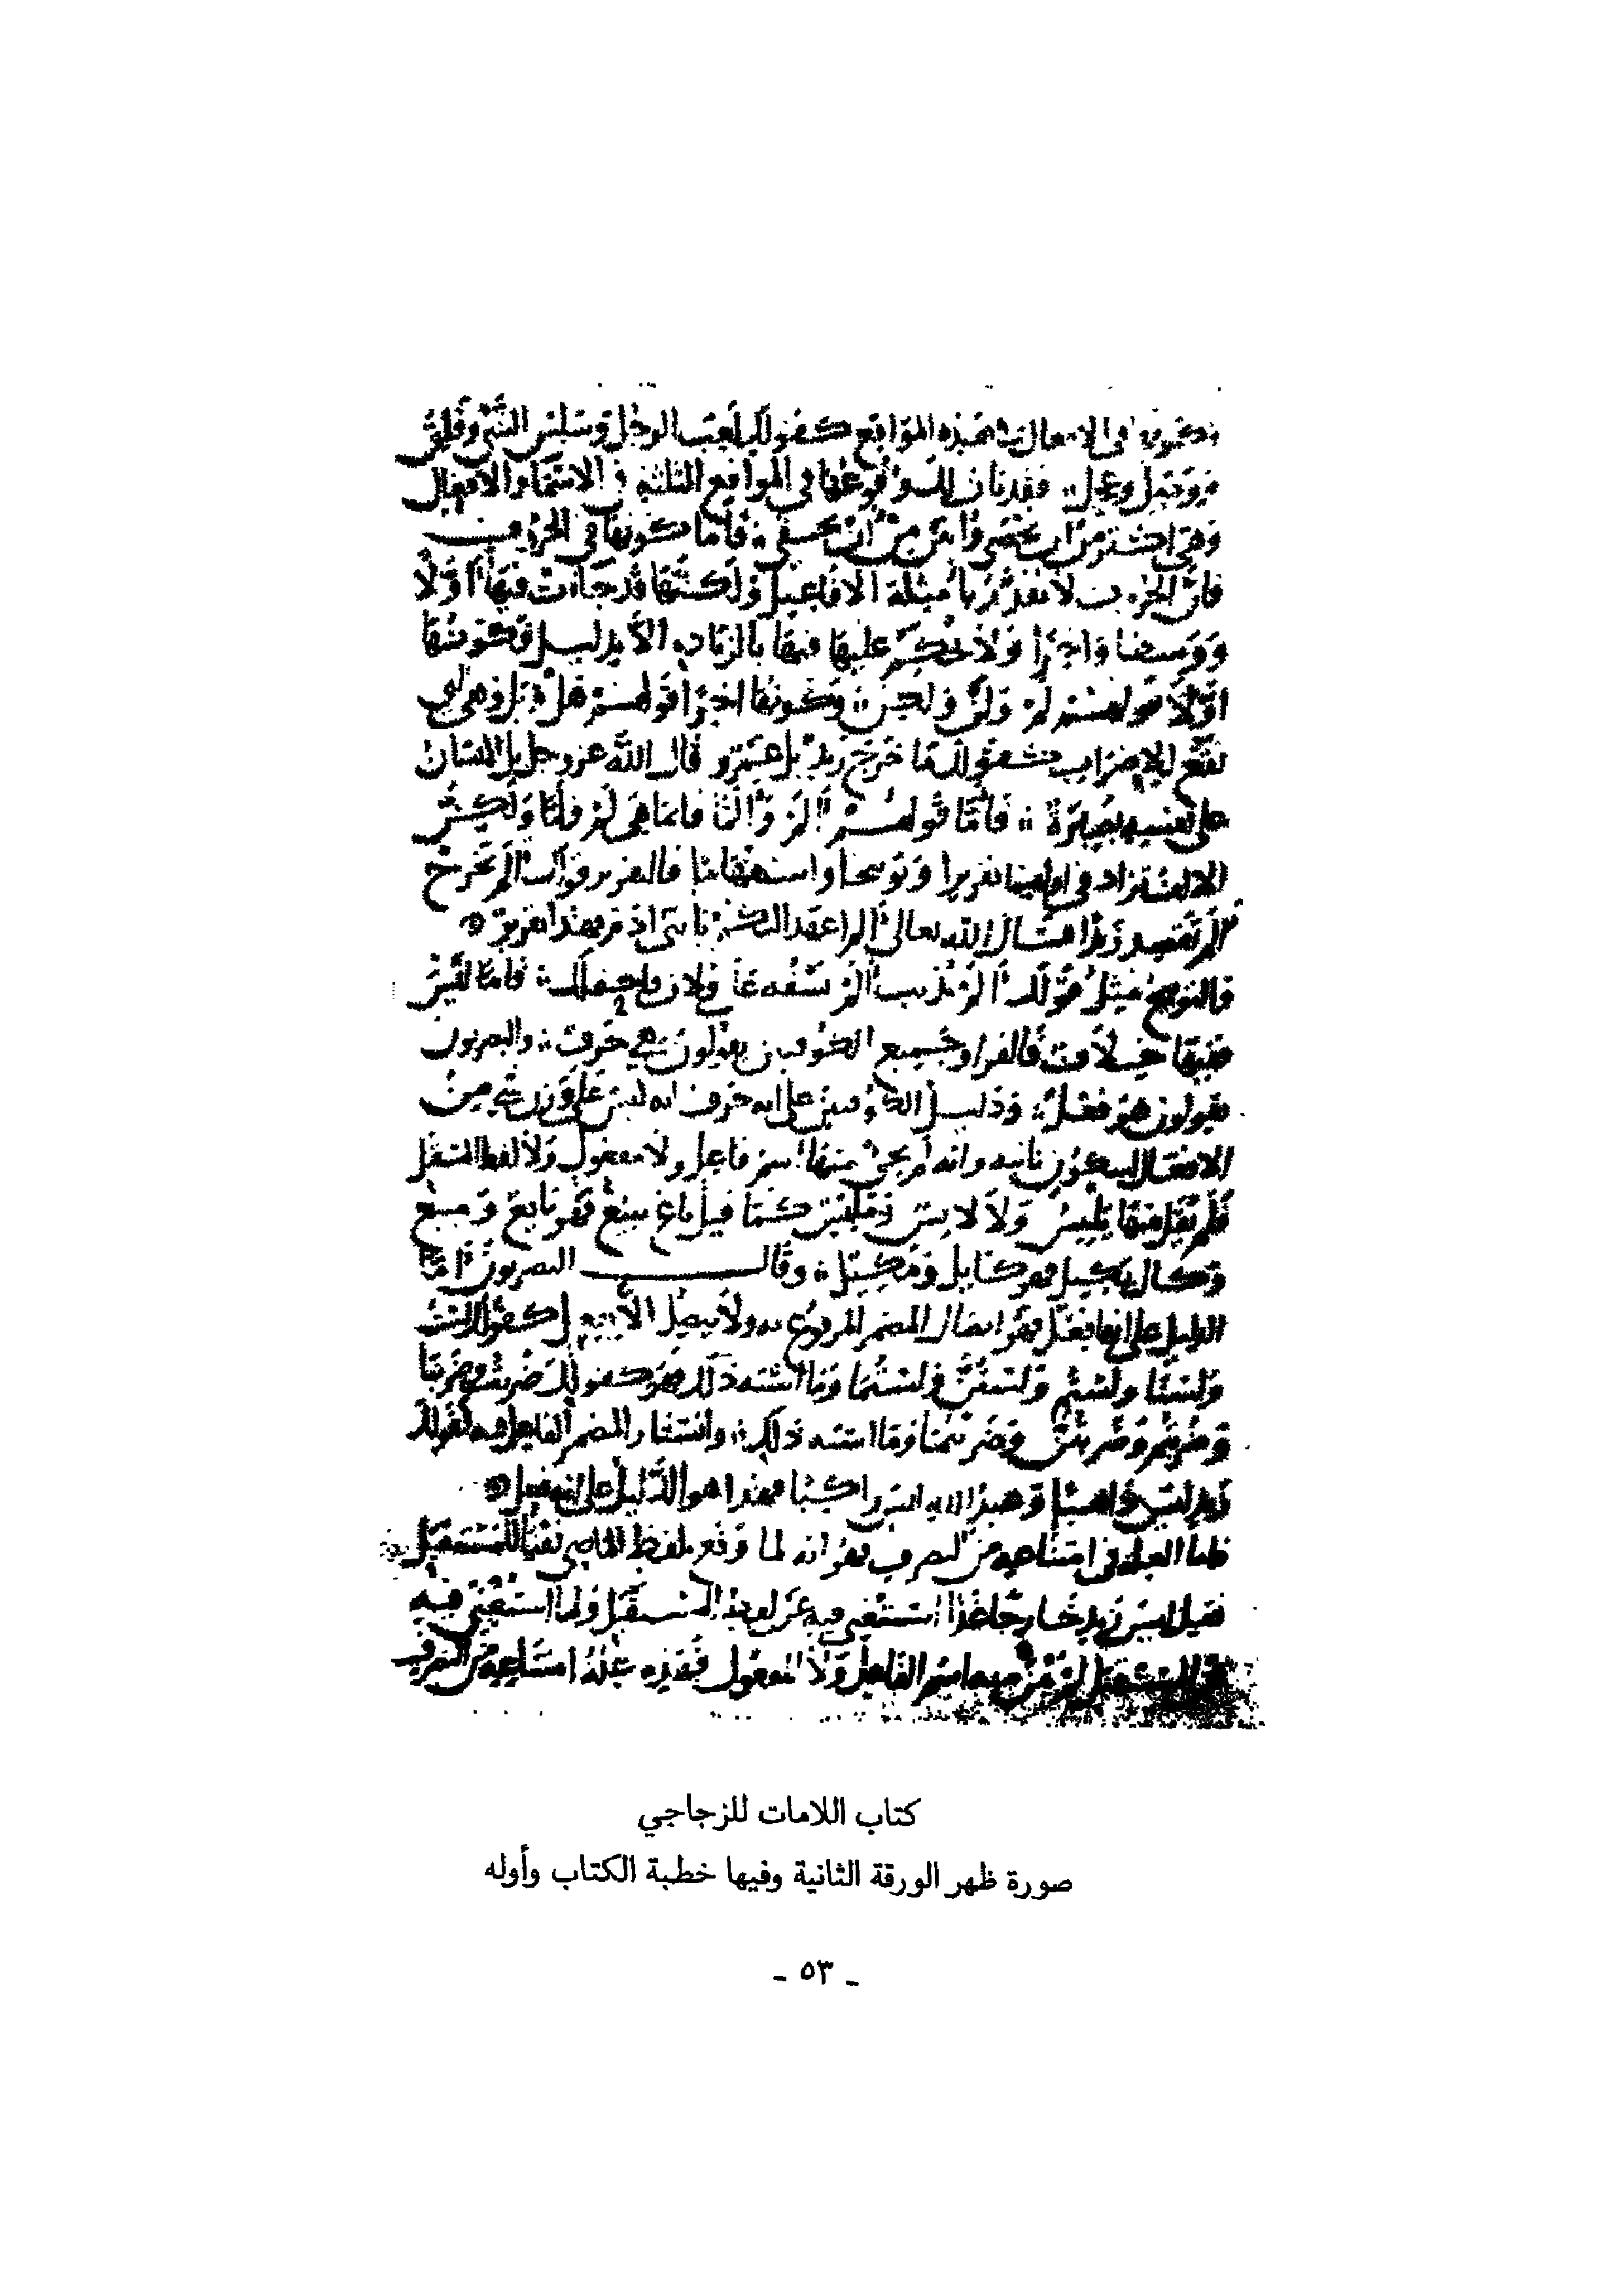 في الافعال هذه المواقع كقولك لعب الرجل وسلس الشي وقلق
وقبل وعجل فقد بان لك وقوعها في المواقع الثلثة في الاسماء والافعال
وهي اكثر من ان تحصى وابين من ان تخفى فاما كونها في الحروف
فان الحروف لا تقدر بامثلة الافاعيل ولكنها قد جاءت فيها اولا
ووسطا واخرا ولا يحكم عليها فيها بالزيادة الا بدليل فكونها
اولا قولهم لم ولن ولكن وكونها اخرا قولهم هل وبل وهي
تقع للاضراب كقولك ما خرج زيد بل عمرو قال الله عز وجل بل الانسان
على نفسه بصيرة فاما قولهم الم والما فانما هي لم ولما ولكن
الالف تزاد في اولها تقريرا وتوبيخا واستفهاما فالتقرير قولك الم تخرج
الم تقصد زيدا قال الله تعالى الم اعهد اليكم يا بني ادم فهذا تقرير
والتوبيخ مثل قولك الم تذنب الم تسفه على فلان فاما ليس
ففيها خلاف فالفراء وجميع الكوفيين يقولون هي حرف والبصريون
يقولون هو فعل ودليل الكوفيين على انه حرف انه ليس على وزن شي من
الافعال لسكون ثانيه وانه لم يجئ منها اسم فاعل ولا مفعول ولا لفظ المستقبل
فلم يقل منها يليس ولا لايس ومليس كما قيل باع يبيع فهو بايع ومبيع
وكال يكيل فهو كايل ومكيل وقال البصريون اما
الدليل على انها فعل فهو اتصال المضمر المرفوع به ولا يتصل الا بفعل كقولك لست
ولسنا ولستم ولستن ولستما وما اشبه ذلك فهو كقولك ضربت وضربنا
وضربتم وضربتن وضربتما وما اشبه ذلك واستتار المضمر الفاعل فيه كقولك
زيد ليس ذاهبا وعبد الله ليس راكبا فهذا هو الدليل على انه فعل
فاما العلة في امتناعه من التصرف فهو انه لما وقع بلفظ الماضي نفيا للمستقبل
فقيل ليس زيد خارجا غدا استغني فيه عن لفظ المستقبل ولما استغني فيه
عن المستقبل لم يبن منه اسم الفاعل ولا المفعول فهذه علة امتناعه من التصرف
كتاب اللامات للزجاجي
صورة ظهر الورقة الثانية وفيها خطبة الكتاب وأوله
ـ ٥٣ ـ